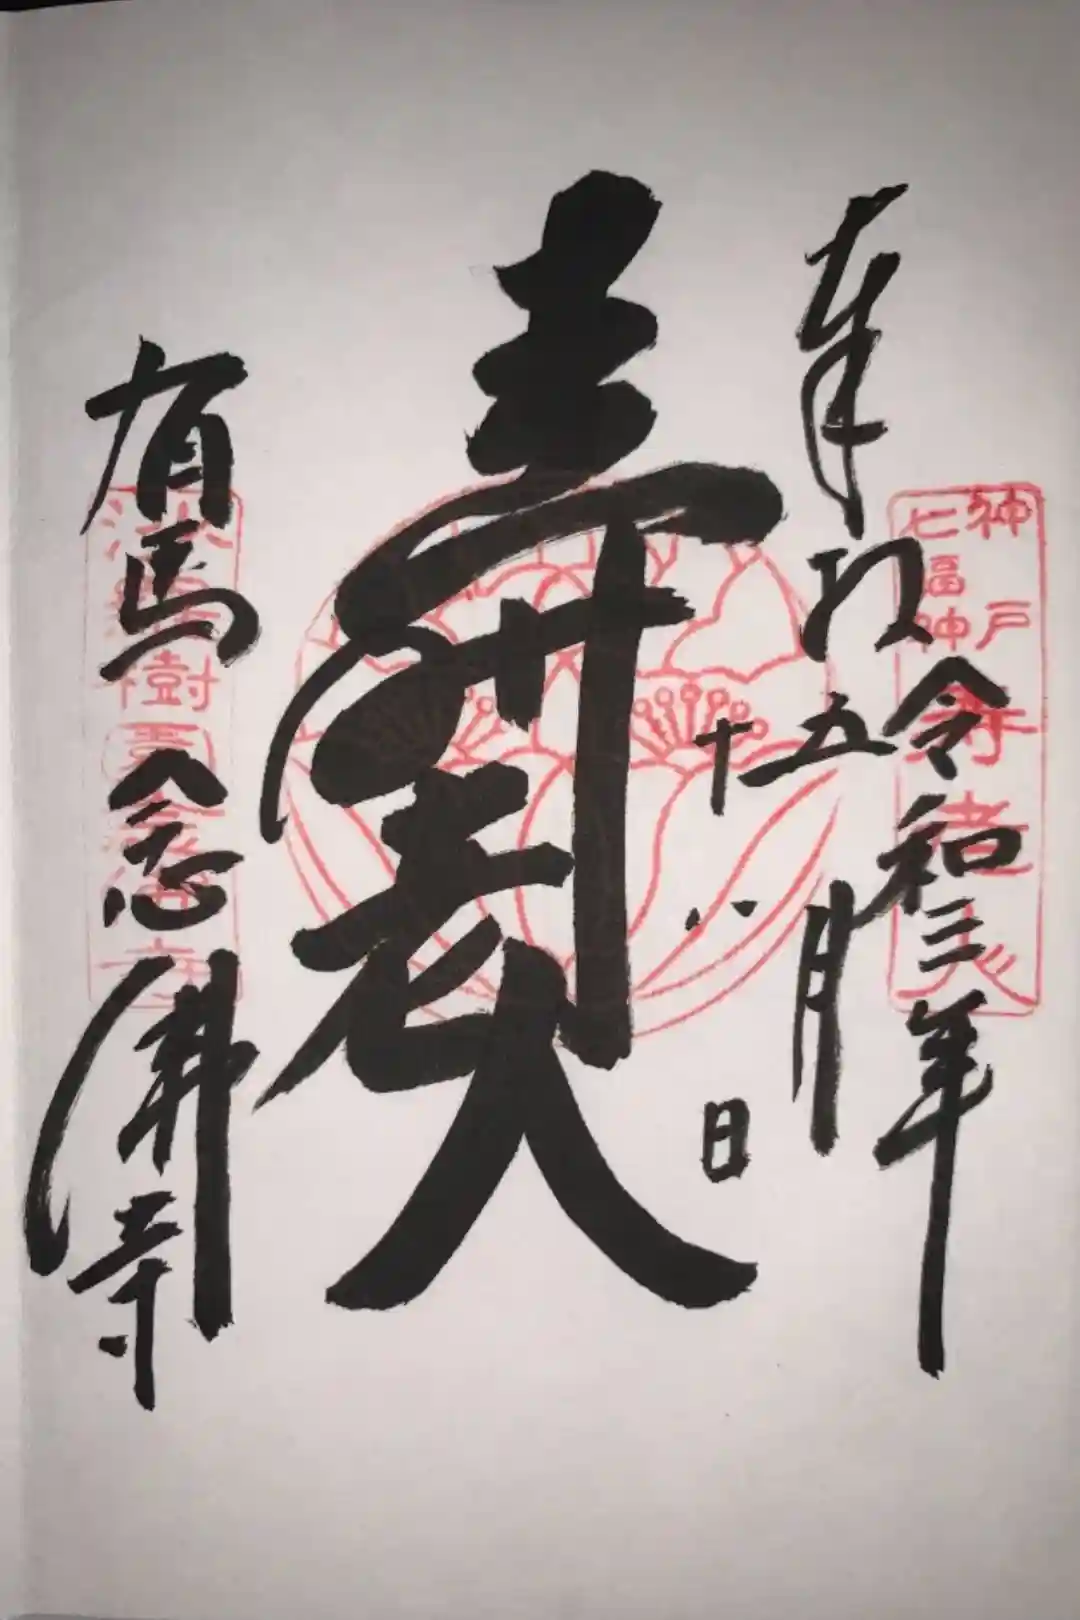 奉拝
令和三年
五月
十八日
神戸
七福神
寿老人
壽老人
有馬
念佛寺